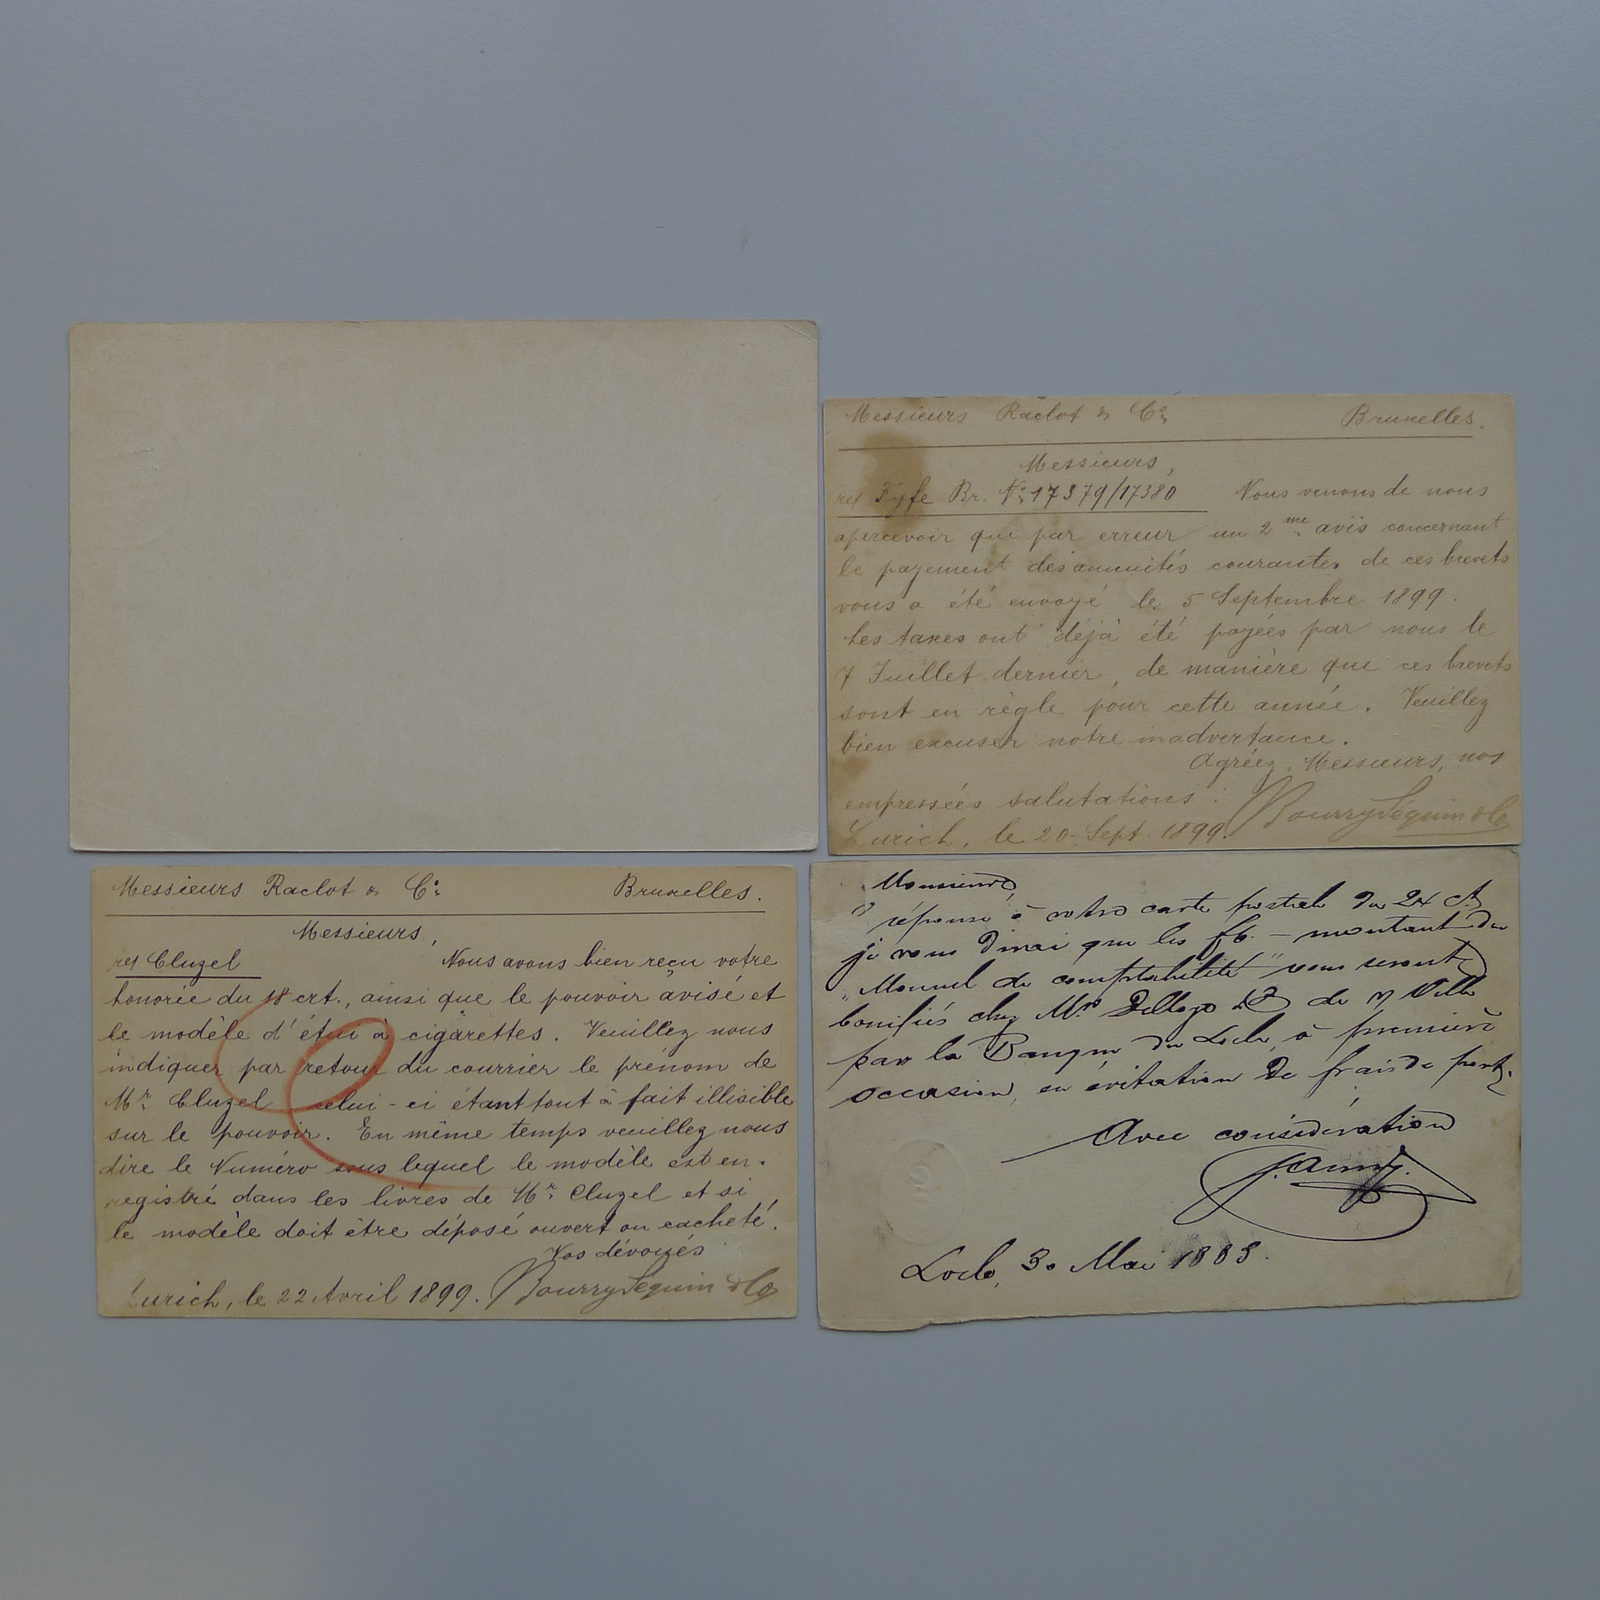 Messieurs Raclot & Cie Bruxelles.
Messieurs,
rel Fyfe Br. No 17379/17380 Nous venons de nous
apercevoir que par erreur un 2me avis concernant
le payement des annuités courantes de ces brevets
vous a été envoyé le 5 Septembre 1899.
Les taxes ont déjà été payées par nous le
7 Juillet dernier, de manière que ces brevets
sont en règle pour cette année. Veuillez
bien excuser notre inadvertance.
Agréez, Messieurs, nos
empressées salutations:
Zurich, le 20 Sept. 1899. Bourry Séquin & Co
Messieurs Raclot & Cie Bruxelles.
Messieurs,
rel Cluzel Nous avons bien reçu votre
honorée du 18 crt., ainsi que le pouvoir avisé et
le modèle d'étui à cigarettes. Veuillez nous
indiquer par retour du courrier le prénom de
Mr. Cluzel celui-ci étant tout à fait illisible
sur le pouvoir. En même temps veuillez nous
dire le Numéro sous lequel le modèle est en-
registré dans les livres de Mr. Cluzel et si
le modèle doit être déposé ouvert ou cacheté.
Vos dévoués
Zurich, le 22 Avril 1899. Bourry Séquin & Co
Monsieur,
réponse à votre carte postale du 24 ct
je vous dirai que les f6.- montant du
"Manuel de comptabilité" vous seront
bonifiés chez Mrs de n/ Ville
par la Banque du Locle, à première
occasion, en évitation de frais de port.
Avec considération
Locle, 30 Mai 1883.